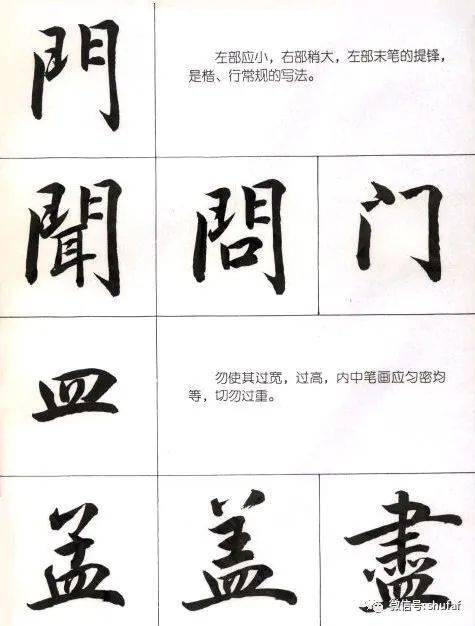 門
左部应小，右部稍大，左部末笔的提锋，
是楷、行常规的写法。
聞 問 门
皿
勿使其过宽，过高，内中笔画应匀密均
等，切勿过重。
孟 盖 盡
微信号: shufaf